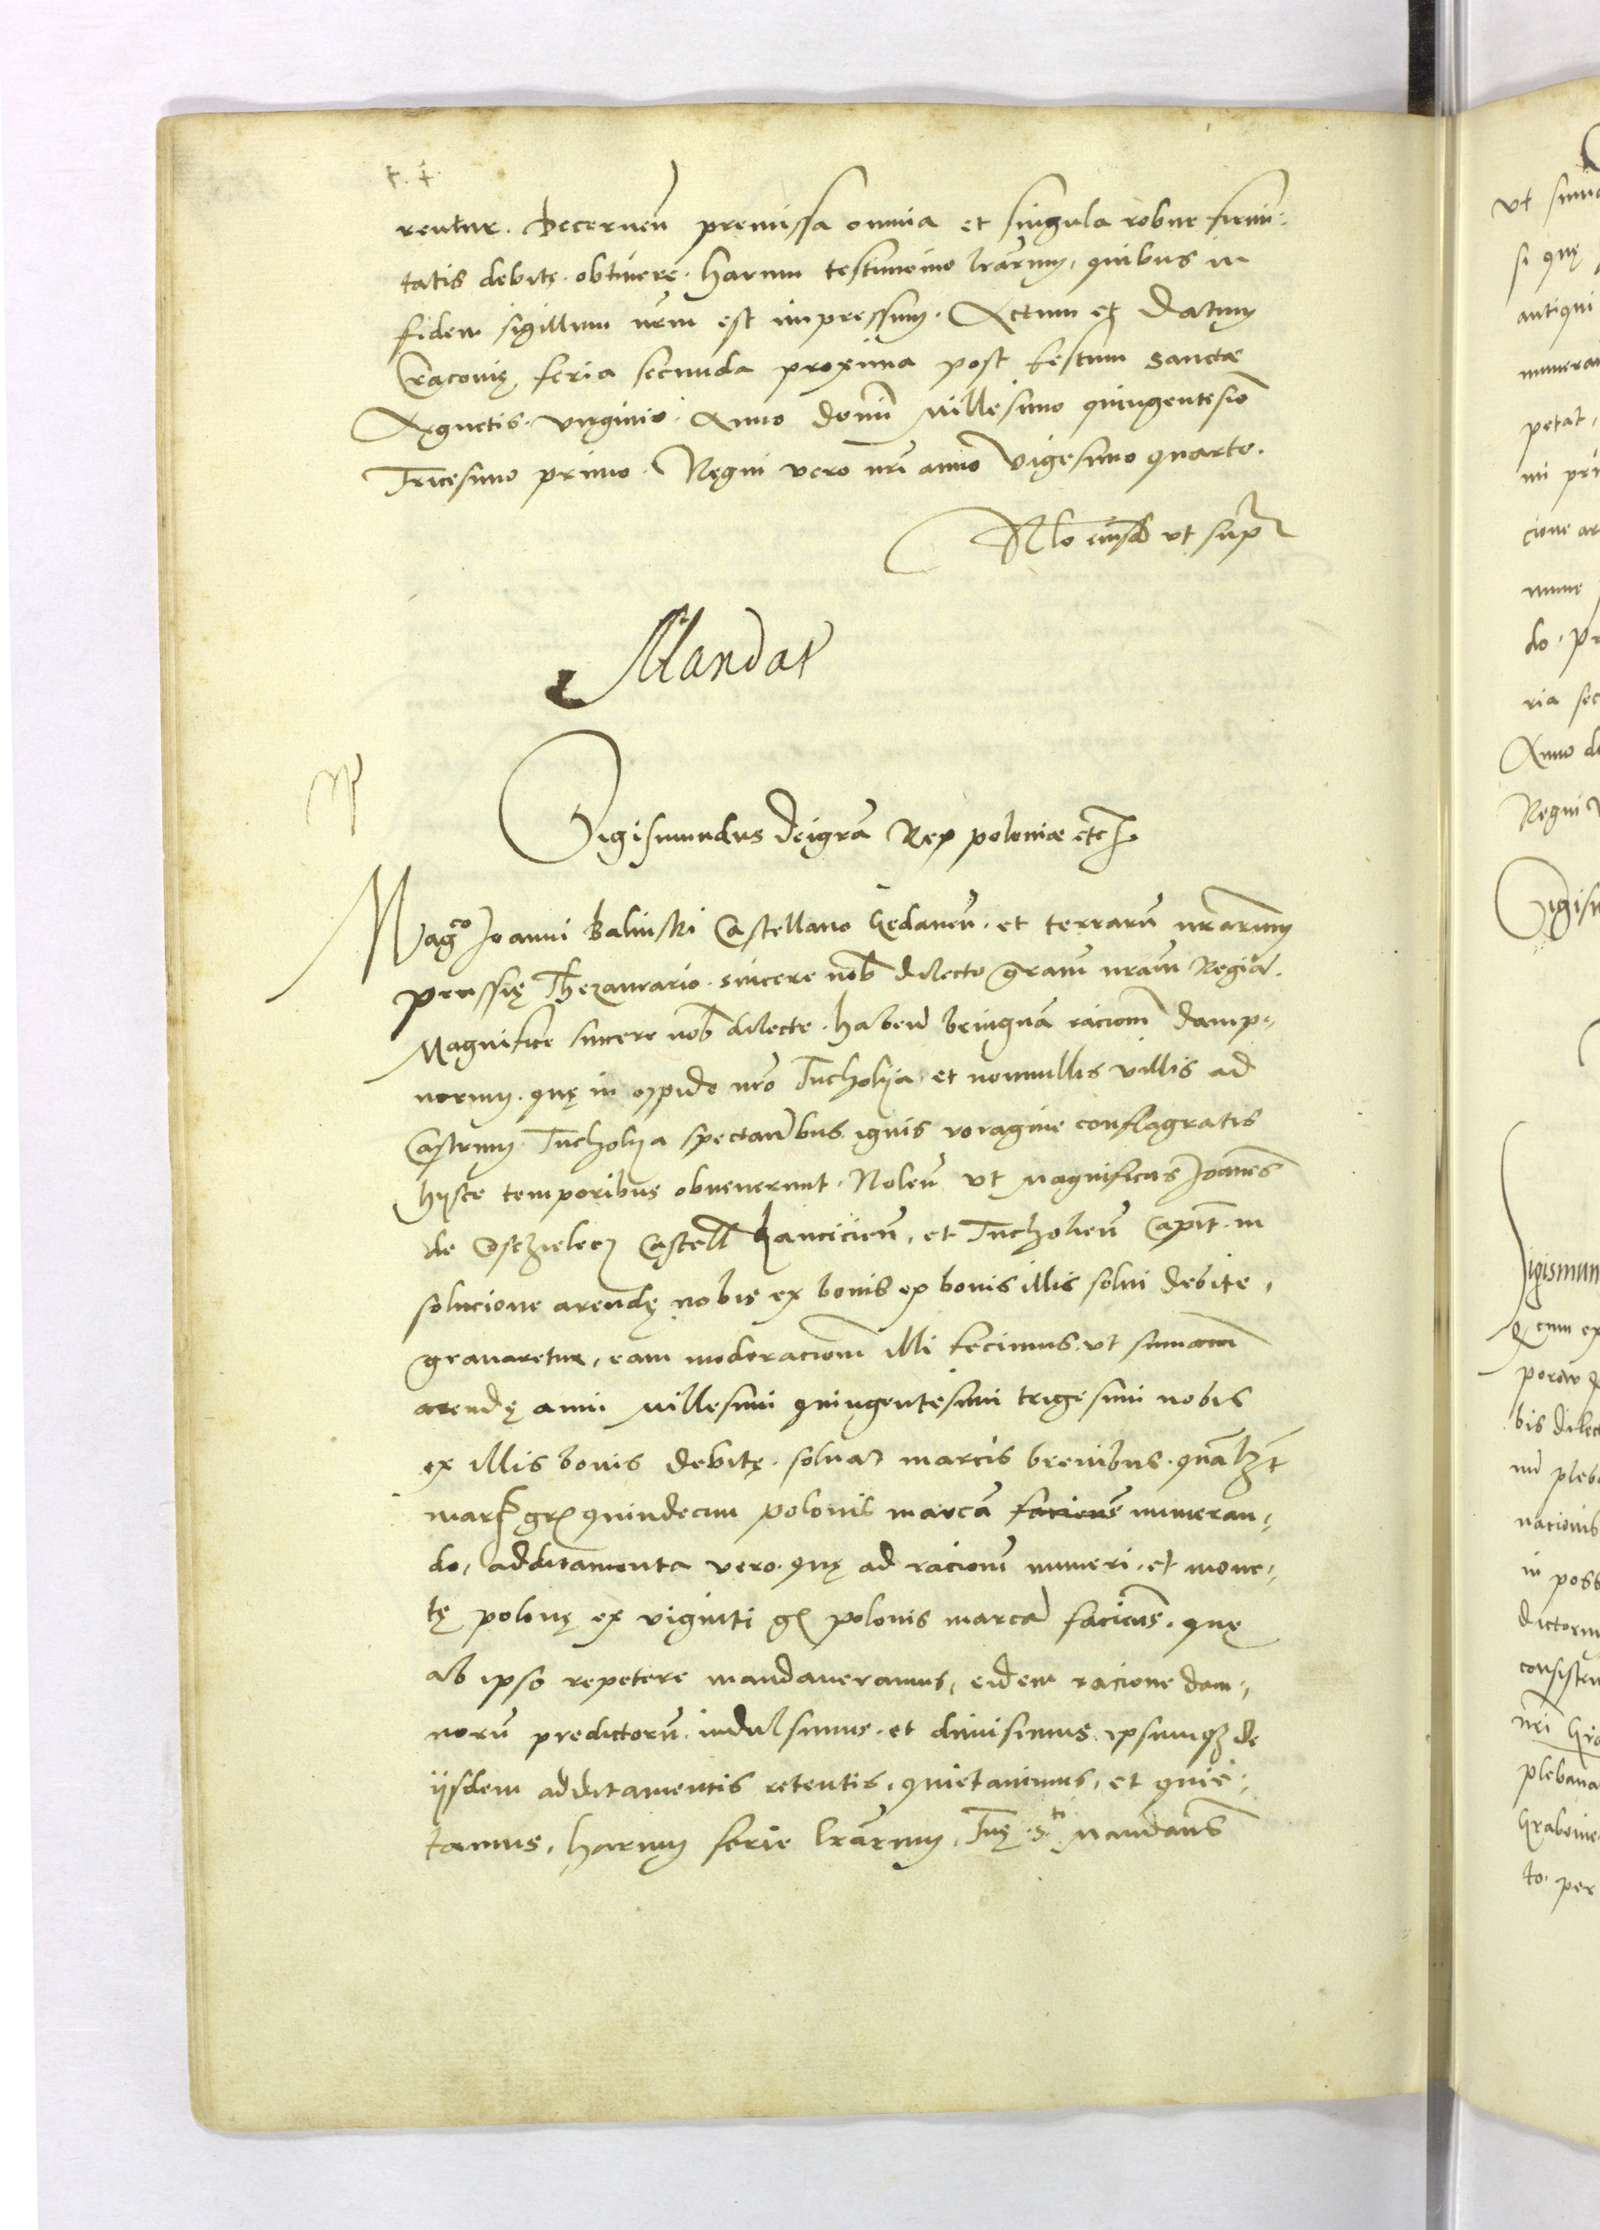 rentur. Decernen̄ premissa omnia et singula robur firmi-
tatis debitę obtinere. Harum testimonio lrārum, quibus in
fidem sigillum nrm̄ est impressum. Actum et Datum
Cracovię feria secunda proxima post festum sanctæ
Agnetis virginis Anno domī Millesimo quingentesiō
Tricesimo primo. Regni vero nrī anno Vigesimo quarto.
Rlo eiusd ut supr
Mandat
Sigismundus dei grā Rex poloniæ etc
Mag^co Joanni Balinski Castellano Gedanen̄. et terrarū nrārum
prussię Thezaurario sincere nob̄ dilecto grām nrām Regiā.
Magnifice sincere nob̄ dilecte. haben̄ benignā raciom̄ damp-
norum. quę in oppido nrō Tucholya et nonnullis villis ad
Castrum Tucholya spectan̄bus ignis voragine conflagratis
hysce temporibus obvenerunt. Nolen̄ ut Magnificus Joannes
de Osczielecz Castell̄ Lancicien̄. et Tucholien̄ Capit̄. in
solucione arendę nobis ex bonis ex bonis illis solvi debite.
gravaretur, eam moderaciom̄ illi fecimus. ut summam
arendę anni Millesimi quingentesimi trigesimi nobis
ex illis bonis debitę. solvat marcis brevibus. quālzt
marc̄ gr quindecim polonis marcā faciens numeran-
do, additamenta vero. quę ad raciom̄ numeri. et mone-
tę polonę ex viginti g polonis marcā facien̄s. quę
ab ipso repetere mandaveramus, eidem racione dam-
norū predictorū. indulsimus. et dimisimus. ipsumq de
iisdem additamentis retentis. quietavimus, et quie-
tamus, harum serie lrārum, Tuę S^ti Mandan̄s